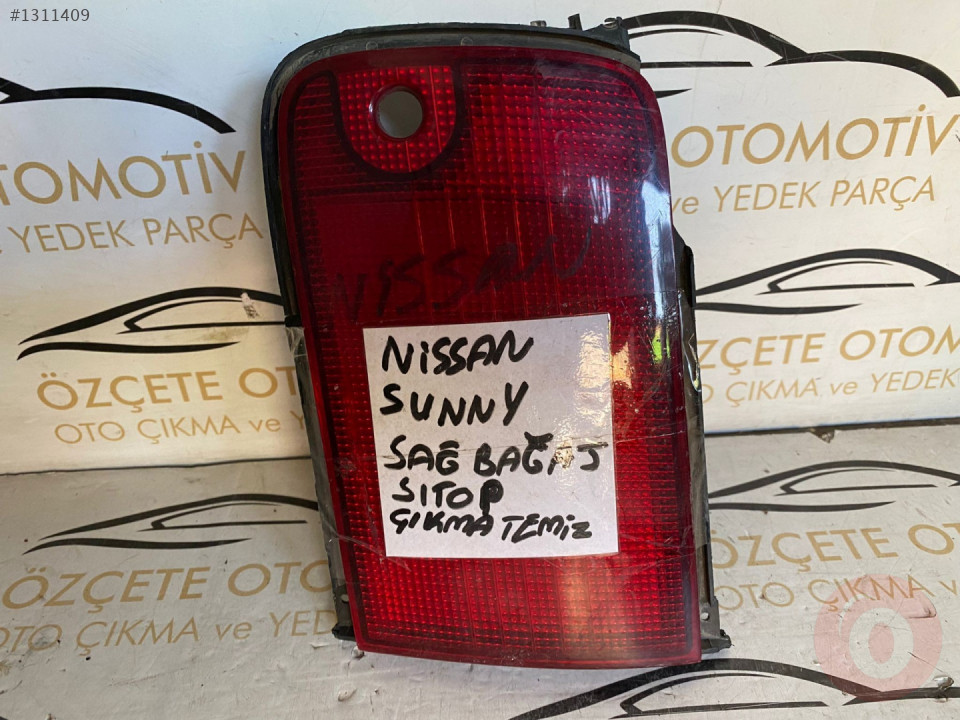 #1311409
OTOMOTİV
YEDEK PARÇA
OTOMOTİV
ve YEDEK PARÇA
NISSAN
NİSSAN
SUNNY
SAĞ BAĞAJ
SITOP
ÇIKMA TEMİZ
ÖZÇETE OTOMOTİV
OTO ÇIKMA ve
ÖZÇETE OTOMOTİV
OTO ÇIKMA ve YEDEK
ÖZÇETE OTOMO
OTO ÇIKMA ve YEDEK
ÖZÇETE OTO
OTO ÇIKMA ve